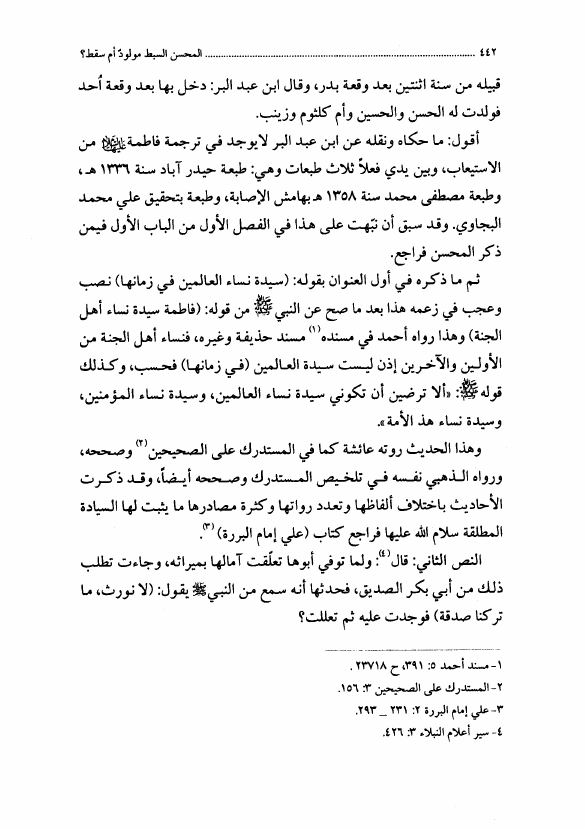 ٤٤٢ ........................................ المحسن السبط مولودٌ أم سقط؟
قبيله من سنة اثنتين بعد وقعة بدر، وقال ابن عبد البر: دخل بها بعد وقعة أُحد
فولدت له الحسن والحسين وأم كلثوم وزينب.
أقول: ما حكاه ونقله عن ابن عبد البر لايوجد في ترجمة فاطمة عليها السلام من
الاستيعاب، وبين يدي فعلاً ثلاث طبعات وهي: طبعة حيدر آباد سنة ١٣٣٦ هـ،
وطبعة مصطفى محمد سنة ١٣٥٨ هـ بهامش الإصابة، وطبعة بتحقيق علي محمد
البجاوي. وقد سبق أن نبّهت على هذا في الفصل الأول من الباب الأول فيمن
ذكر المحسن فراجع.
ثم ما ذكره في أول العنوان بقوله: (سيدة نساء العالمين في زمانها) نصب
وعجب في زعمه هذا بعد ما صح عن النبي ﷺ من قوله: (فاطمة سيدة نساء أهل
الجنة) وهذا رواه أحمد في مسنده(١) مسند حذيفة وغيره، فنساء أهل الجنة من
الأولين والآخرين إذن ليست سيدة العالمين (في زمانها) فحسب، وكذلك
قوله ﷺ: «ألا ترضين أن تكوني سيدة نساء العالمين، وسيدة نساء المؤمنين،
وسيدة نساء هذ الأمة».
وهذا الحديث روته عائشة كما في المستدرك على الصحيحين(٢) وصححه،
ورواه الذهبي نفسه في تلخيص المستدرك وصححه أيضاً، وقد ذكرت
الأحاديث باختلاف ألفاظها وتعدد رواتها وكثرة مصادرها ما يثبت لها السيادة
المطلقة سلام الله عليها فراجع كتاب (علي إمام البررة)(٣).
النص الثاني: قال(٤): ولما توفي أبوها تعلّقت آمالها بميراثه، وجاءت تطلب
ذلك من أبي بكر الصديق، فحدثها أنه سمع من النبي ﷺ يقول: (لا نورث، ما
تركنا صدقة) فوجدت عليه ثم تعللت؟
١- مسند أحمد ٥: ٣٩١، ح ٢٣٧١٨.
٢- المستدرك على الصحيحين ٣: ١٥٦.
٣- علي إمام البررة ٢: ٢٣١ _ ٢٩٣.
٤- سير أعلام النبلاء ٣: ٤٢٦.